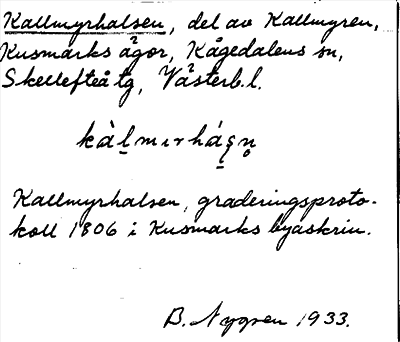 Kallmyrhalsen, del av Kallmyren,
Kusmarks ägor, Kågedalens sn,
Skellefteå tg, Västerb. l.
Kallmyrhalsen, graderingsproto-
koll 1806 i Kusmarks byaskrin.
B. Nygren 1933.